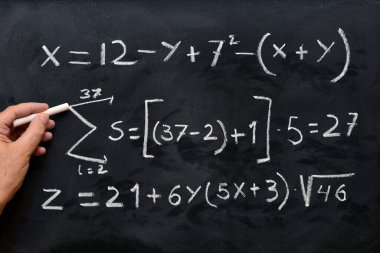 x = 12 - y + 7² - (x + y)
37
∑ S = [(37-2)+1] · 5 = 27
i = 2
z = 21 + 6y(5x+3) · √46